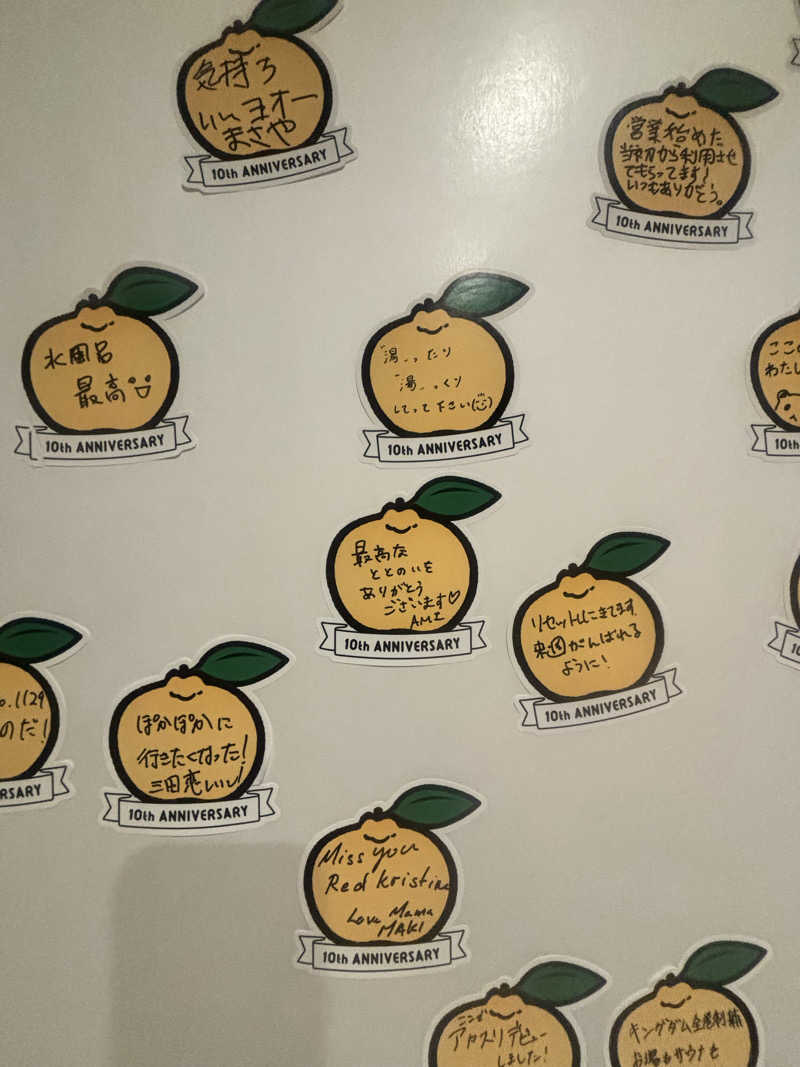 気持ち
いいヨオー
まさや
10th ANNIVERSARY
営業始めた
当初から利用させ
てもらってます!
いつもありがとう。
10th ANNIVERSARY
水風呂
最高
10th ANNIVERSARY
「湯」ったり
「湯」っくり
してって下さい
10th ANNIVERSARY
ここの
わたし
10th
最高な
ととのいを
ありがとう
ございます♡
AMI
10th ANNIVERSARY
リセットしにきてます。
来週がんばれる
ように!
10th ANNIVERSARY
o.1129
のだ!
RSARY
ぽかぽかに
行きたくなった!
三田恋いし!
10th ANNIVERSARY
Miss you
Red Kristina
Love Mama
MAKI
10th ANNIVERSARY
アカスリデビュー
しました!
キングダム全巻制覇
お湯もサウナも